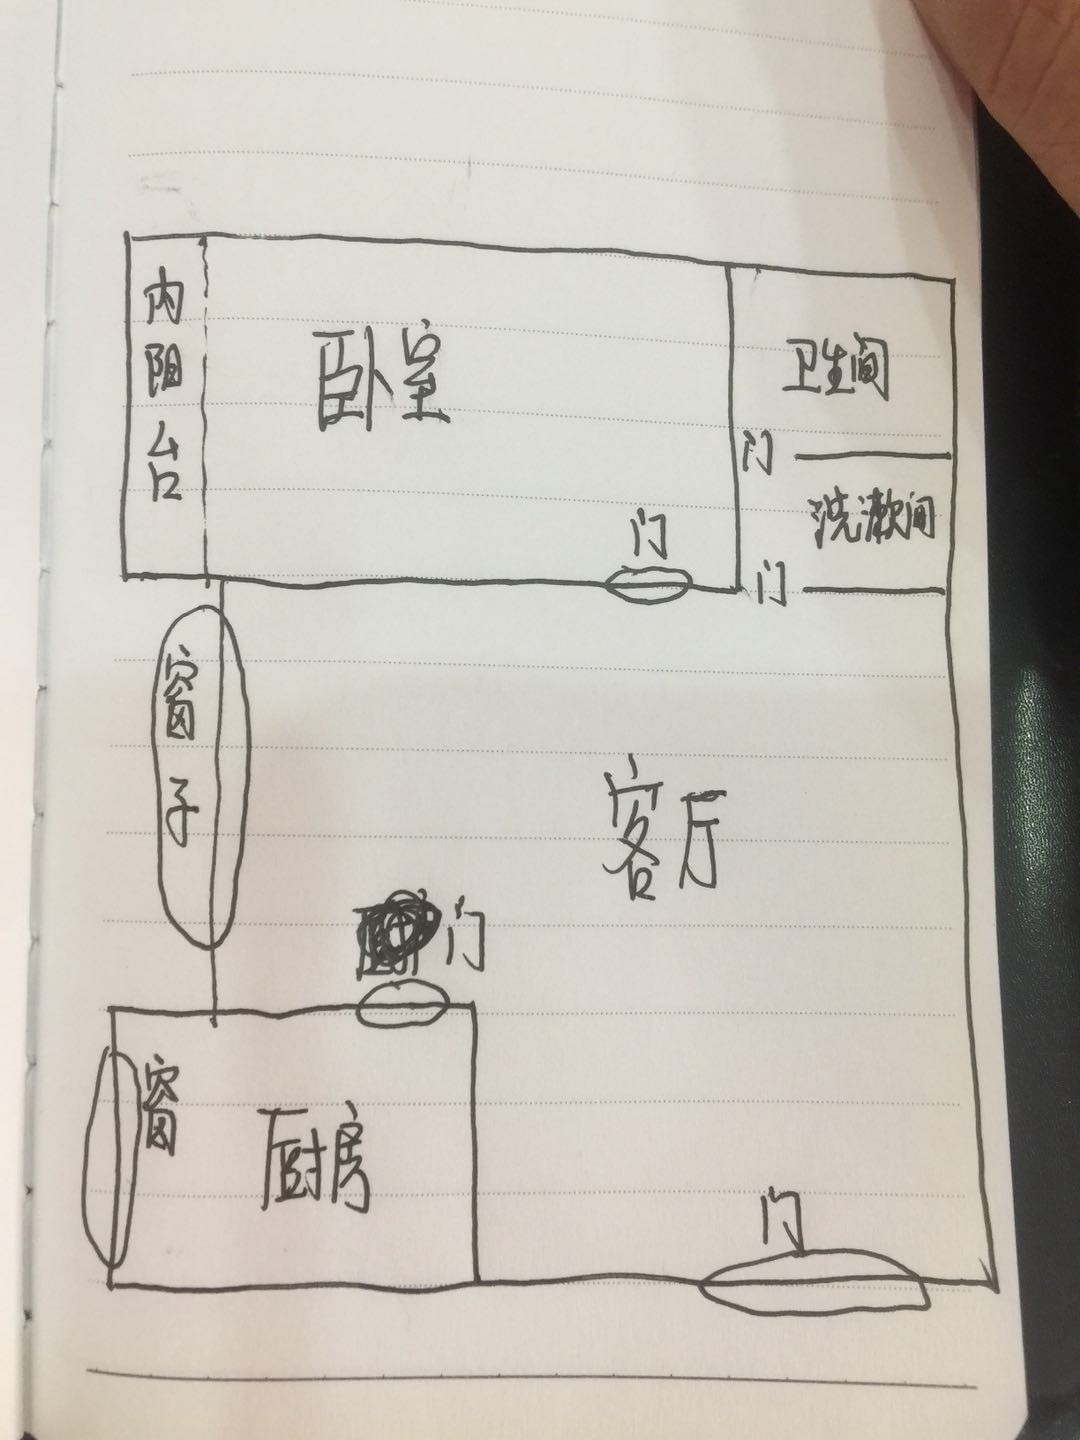 内阳台
卧室
卫生间
门
洗漱间
门
门
窗子
客厅
门
窗
厨房
门